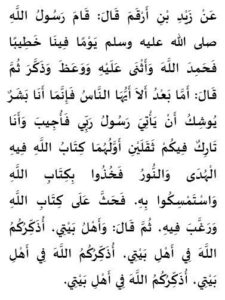 عَنْ زَيْدِ بْنِ أَرْقَمَ قَالَ: قَامَ رَسُولُ اللَّهِ
صلى الله عليه وسلم يَوْمًا فِينَا خَطِيبًا
فَحَمِدَ اللَّهَ وَأَثْنَى عَلَيْهِ وَوَعَظَ وَذَكَّرَ ثُمَّ
قَالَ: أَمَّا بَعْدُ أَلاَ أَيُّهَا النَّاسُ فَإِنَّمَا أَنَا بَشَرٌ
يُوشِكُ أَنْ يَأْتِيَ رَسُولُ رَبِّي فَأُجِيبَ وَأَنَا
تَارِكٌ فِيكُمْ ثَقَلَيْنِ أَوَّلُهُمَا كِتَابُ اللَّهِ فِيهِ
الْهُدَى وَالنُّورُ فَخُذُوا بِكِتَابِ اللَّهِ
وَاسْتَمْسِكُوا بِهِ. فَحَثَّ عَلَى كِتَابِ اللَّهِ
وَرَغَّبَ فِيهِ. ثُمَّ قَالَ: وَأَهْلُ بَيْتِي. أُذَكِّرُكُمُ
اللَّهَ فِي أَهْلِ بَيْتِي. أُذَكِّرُكُمُ اللَّهَ فِي أَهْلِ
بَيْتِي. أُذَكِّرُكُمُ اللَّهَ فِي أَهْلِ بَيْتِي.